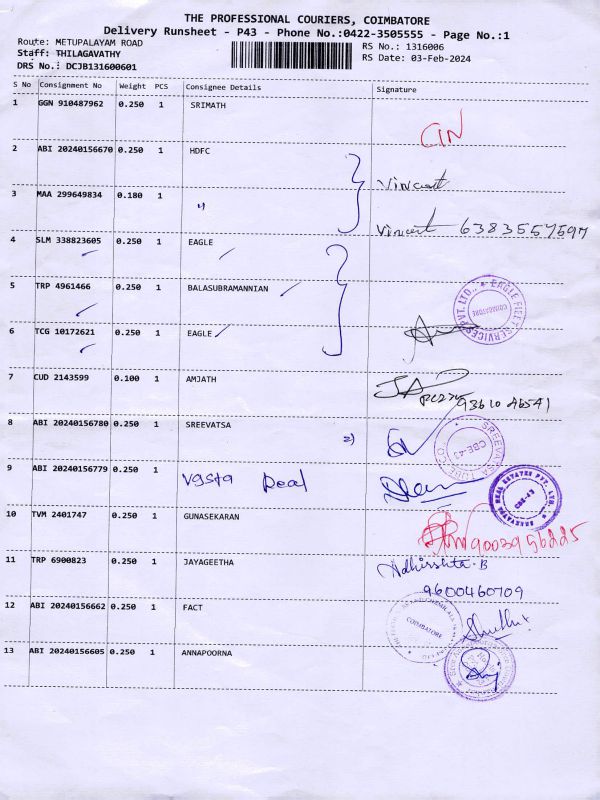 THE PROFESSIONAL COURIERS, COIMBATORE
Delivery Runsheet - P43 - Phone No.:0422-3505555 - Page No.:1
Route: METUPALAYAM ROAD
RS No.: 1316006
Staff: THILAGAVATHY
RS Date: 03-Feb-2024
DRS No.: DCJB131600601
S No Consignment No Weight PCS Consignee Details Signature
1 GGN 910487962 0.250 1 SRIMATH
2 ABI 20240156670 0.250 1 HDFC Vincent
3 MAA 299649834 0.180 1 Vincent 6383557597
4 SLM 338823605 0.250 1 EAGLE
5 TRP 4961466 0.250 1 BALASUBRAMANNIAN
EAGLE FLEET SERVICES PVT. LTD. COIMBATORE
6 TCG 10172621 0.250 1 EAGLE
7 CUD 2143599 0.100 1 AMJATH
93610 46541
8 ABI 20240156780 0.250 1 SREEVATSA 2)
SREEVATSA CBE-43
9 ABI 20240156779 0.250 1 Vgsta Real
SREEVATSA REAL ESTATES PVT. LTD. CBE-43
10 TVM 2401747 0.250 1 GUNASEKARAN
9003956225
11 TRP 6900823 0.250 1 JAYAGEETHA
9600460709
12 ABI 20240156662 0.250 1 FACT
COIMBATORE
13 ABI 20240156605 0.250 1 ANNAPOORNA